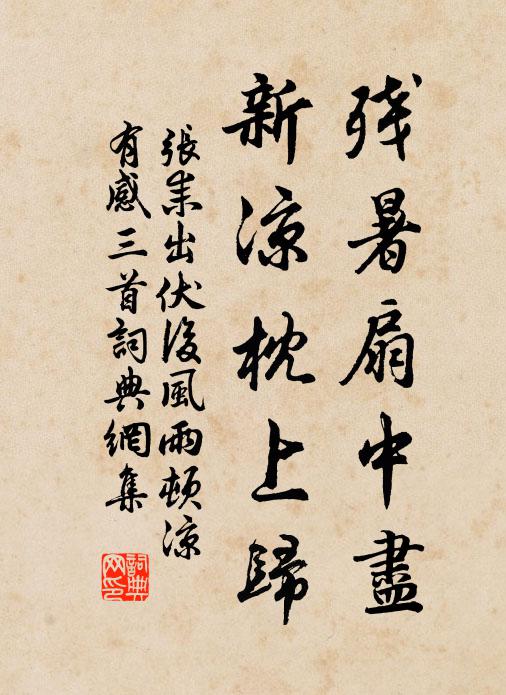 残暑扇中盡
新涼枕上歸
張耒出伏後風雨頓涼
有感三首詞典網集
詞典
网印